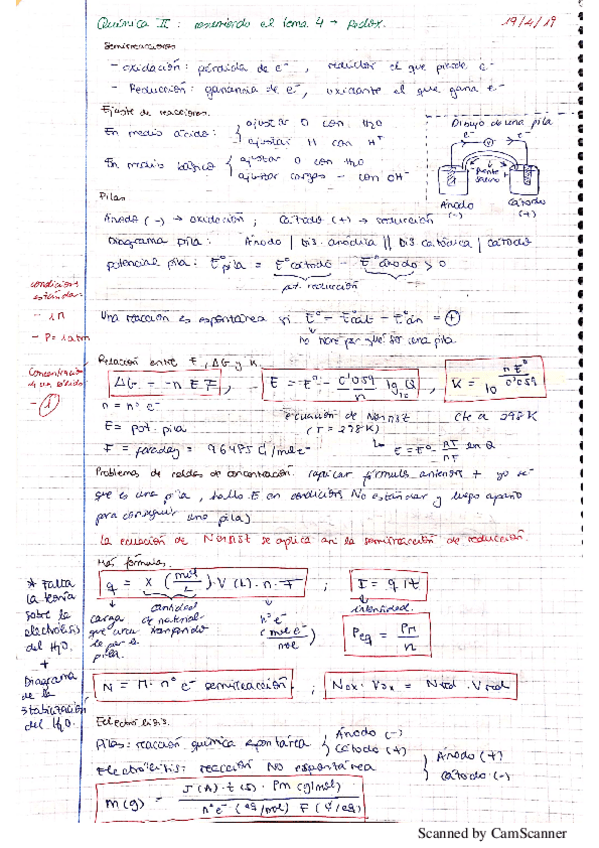 Química II: resumiendo el tema 4 → Redox.
19/4/19
Semirreacciones
- Oxidación: pérdida de e⁻, reductor el que pierde e⁻
- Reducción: ganancia de e⁻, oxidante el que gana e⁻
Ajuste de reacciones.
En medio ácido: { ajustar O con H₂O
ajustar H con H⁺
En medio básico { ajustar O con H₂O
ajustar cargas - con OH⁻
Dibujo de una pila
e⁻ V e⁻
Puente salino
Ánodo (-)
Cátodo (+)
Pilas
Ánodo (-) → oxidación; Cátodo (+) → reducción
Diagrama pila: Ánodo | Dis. anódica || Dis. catódica | cátodo
potencial pila: E°pila = E°cátodo - E°ánodo > 0
pot. reducción
condiciones estándar:
- 1M
- P = 1 atm
Una reacción es espontánea si E° = E°cat - E°an = (+)
no tiene por qué ser una pila
Relación entre E, ΔG y K.
Concentración de un sólido
- 1
ΔG = -n E F, E = E° - 0'059/n log₁₀ Q, K = 10^(nE°/0'059)
n = nº e⁻
ecuación de Nernst (T = 298K)
cte a 298K
E = pot. pila
F = faraday = 96485 C/mol e⁻
E = E° - RT/nF ln Q
Problemas de celdas de concentración. (aplicar fórmula anteriores + yo sé
que es una pila, hallo E en condiciones No estándar y luego opero
para conseguir una pila)
La ecuación de Nernst se aplica a la semirreacción de reducción.
Más fórmulas.
* Falta la teoría sobre la electrólisis del H₂O.
+
Diagrama de la estabilización del H₂O.
q = x (mol/L) · V(L) · n · F ; I = q/t
carga que circula por la pila.
cantidad de material
nº e⁻ (mol e⁻/mol)
intensidad.
Peq = Pm/n
N = M · nº e⁻ semirreacción ; Nox · Vox = Nred · Vred
Electrólisis.
Pilas: reacción química espontánea { Ánodo (-)
Cátodo (+)
Electrólisis: reacción NO espontánea { Ánodo (+)
cátodo (-)
m(g) = I(A) · t(s) · Pm(g/mol) / nº e⁻ (eq/mol) F (C/eq)
Scanned by CamScanner